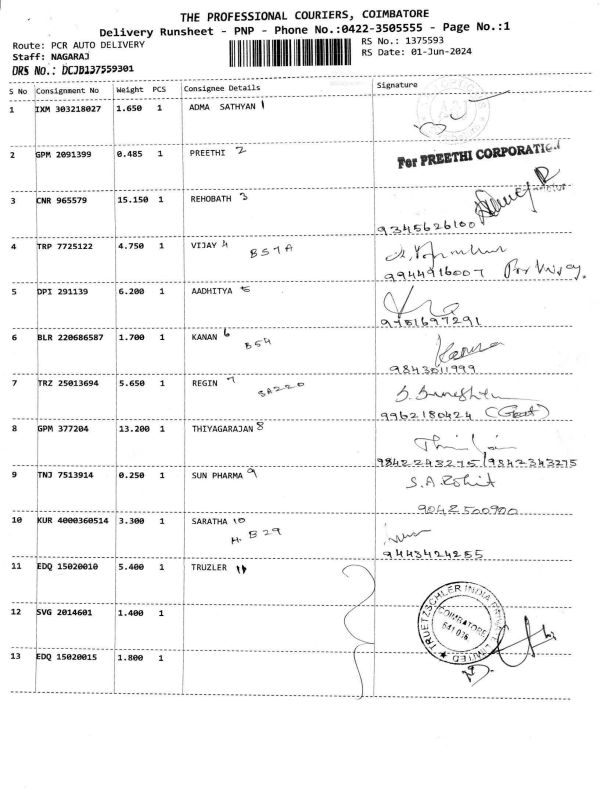 THE PROFESSIONAL COURIERS, COIMBATORE
Delivery Runsheet - PNP - Phone No.:0422-3505555 - Page No.:1
Route: PCR AUTO DELIVERY
RS No.: 1375593
Staff: NAGARAJ
RS Date: 01-Jun-2024
DRS No.: DCJB137559301
S No Consignment No Weight PCS Consignee Details Signature
1 IXM 303218027 1.650 1 ADMA SATHYAN 1
2 GPM 2091399 0.485 1 PREETHI 2
For PREETHI CORPORATION
3 CNR 965579 15.150 1 REHOBATH 3
9345626100
4 TRP 7725122 4.750 1 VIJAY 4
B57A
9944916007 For Vijay.
5 DPI 291139 6.200 1 AADHITYA 5
9751697291
6 BLR 220686587 1.700 1 KANAN 6
B54
9843011999
7 TRZ 25013694 5.650 1 REGIN 7
SA220
9962180424
8 GPM 377204 13.200 1 THIYAGARAJAN 8
9842243275/9842343275
9 TNJ 7513914 0.250 1 SUN PHARMA 9
S.A. Rohit
9042500900
10 KUR 4000360514 3.300 1 SARATHA 10
H. B 29
9443424255
11 EDQ 15020010 5.400 1 TRUZLER 11
12 SVG 2014601 1.400 1
TRUETZSCHLER INDIA PRIVATE LIMITED
COIMBATORE
641 036
13 EDQ 15020015 1.800 1